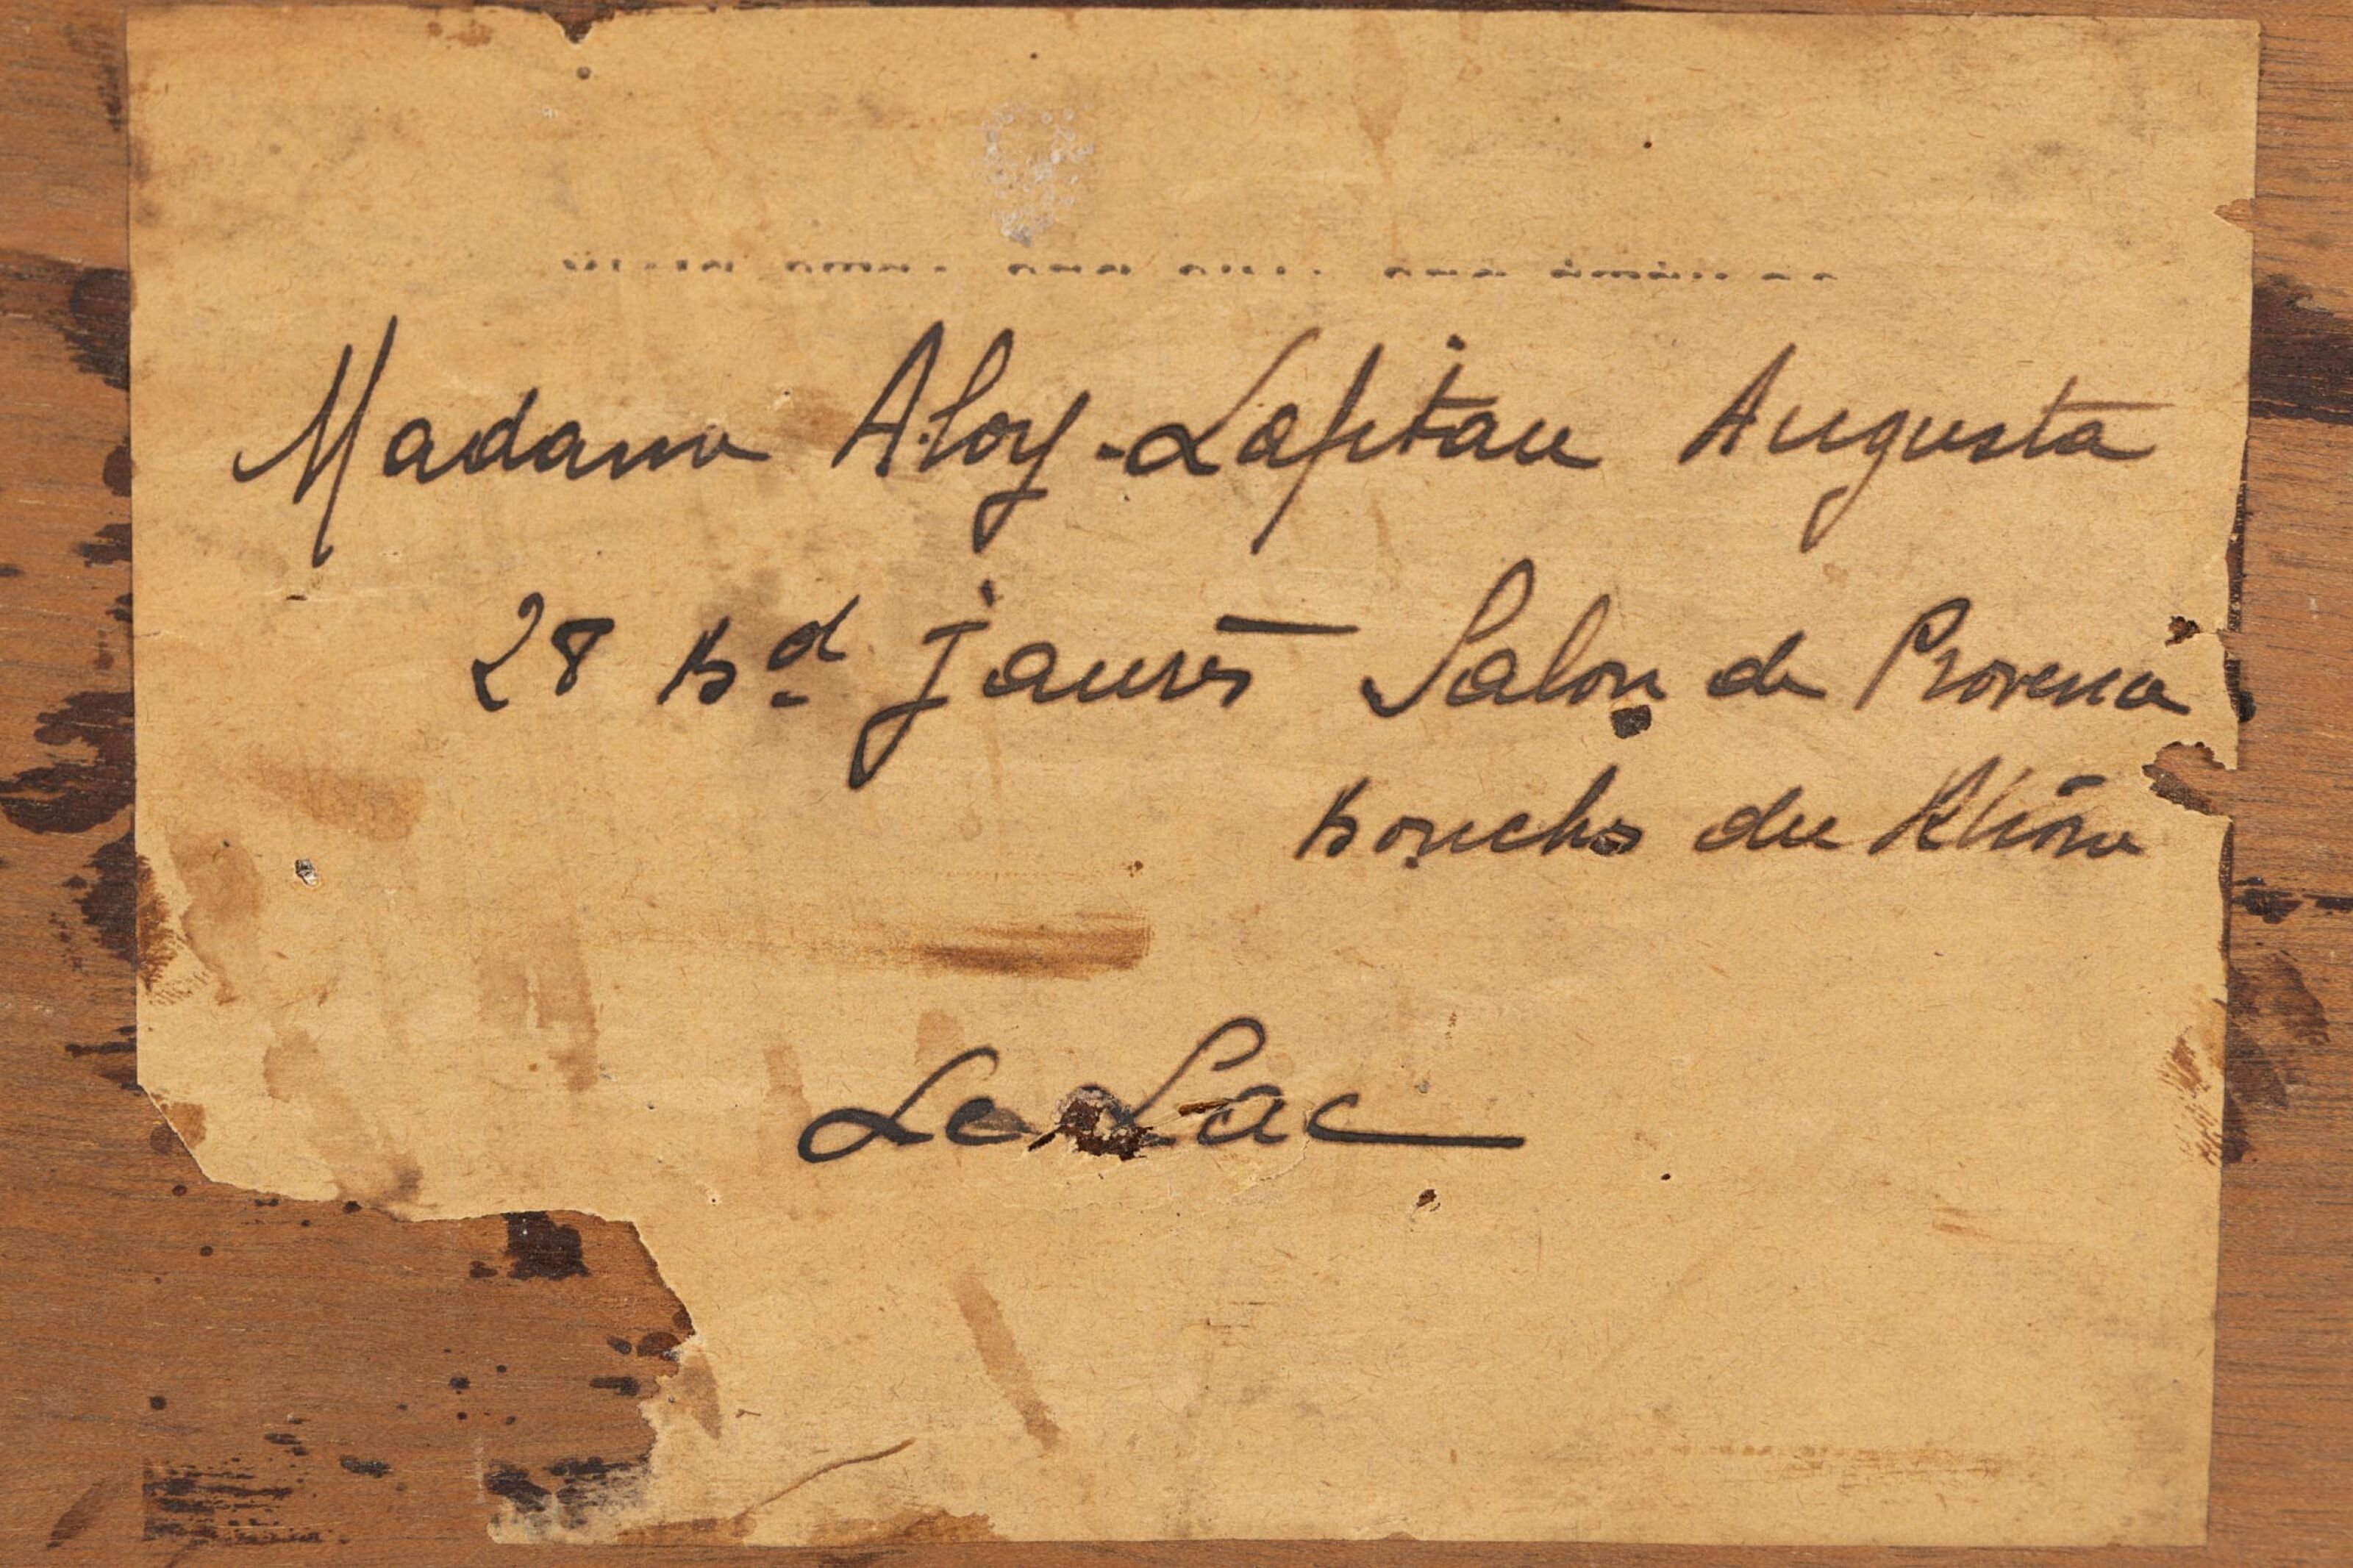 Madame Aloy-Lafitau Augusta
28 Bd Jaurès Salon de Provence
Bouches du Rhône
Le Lac